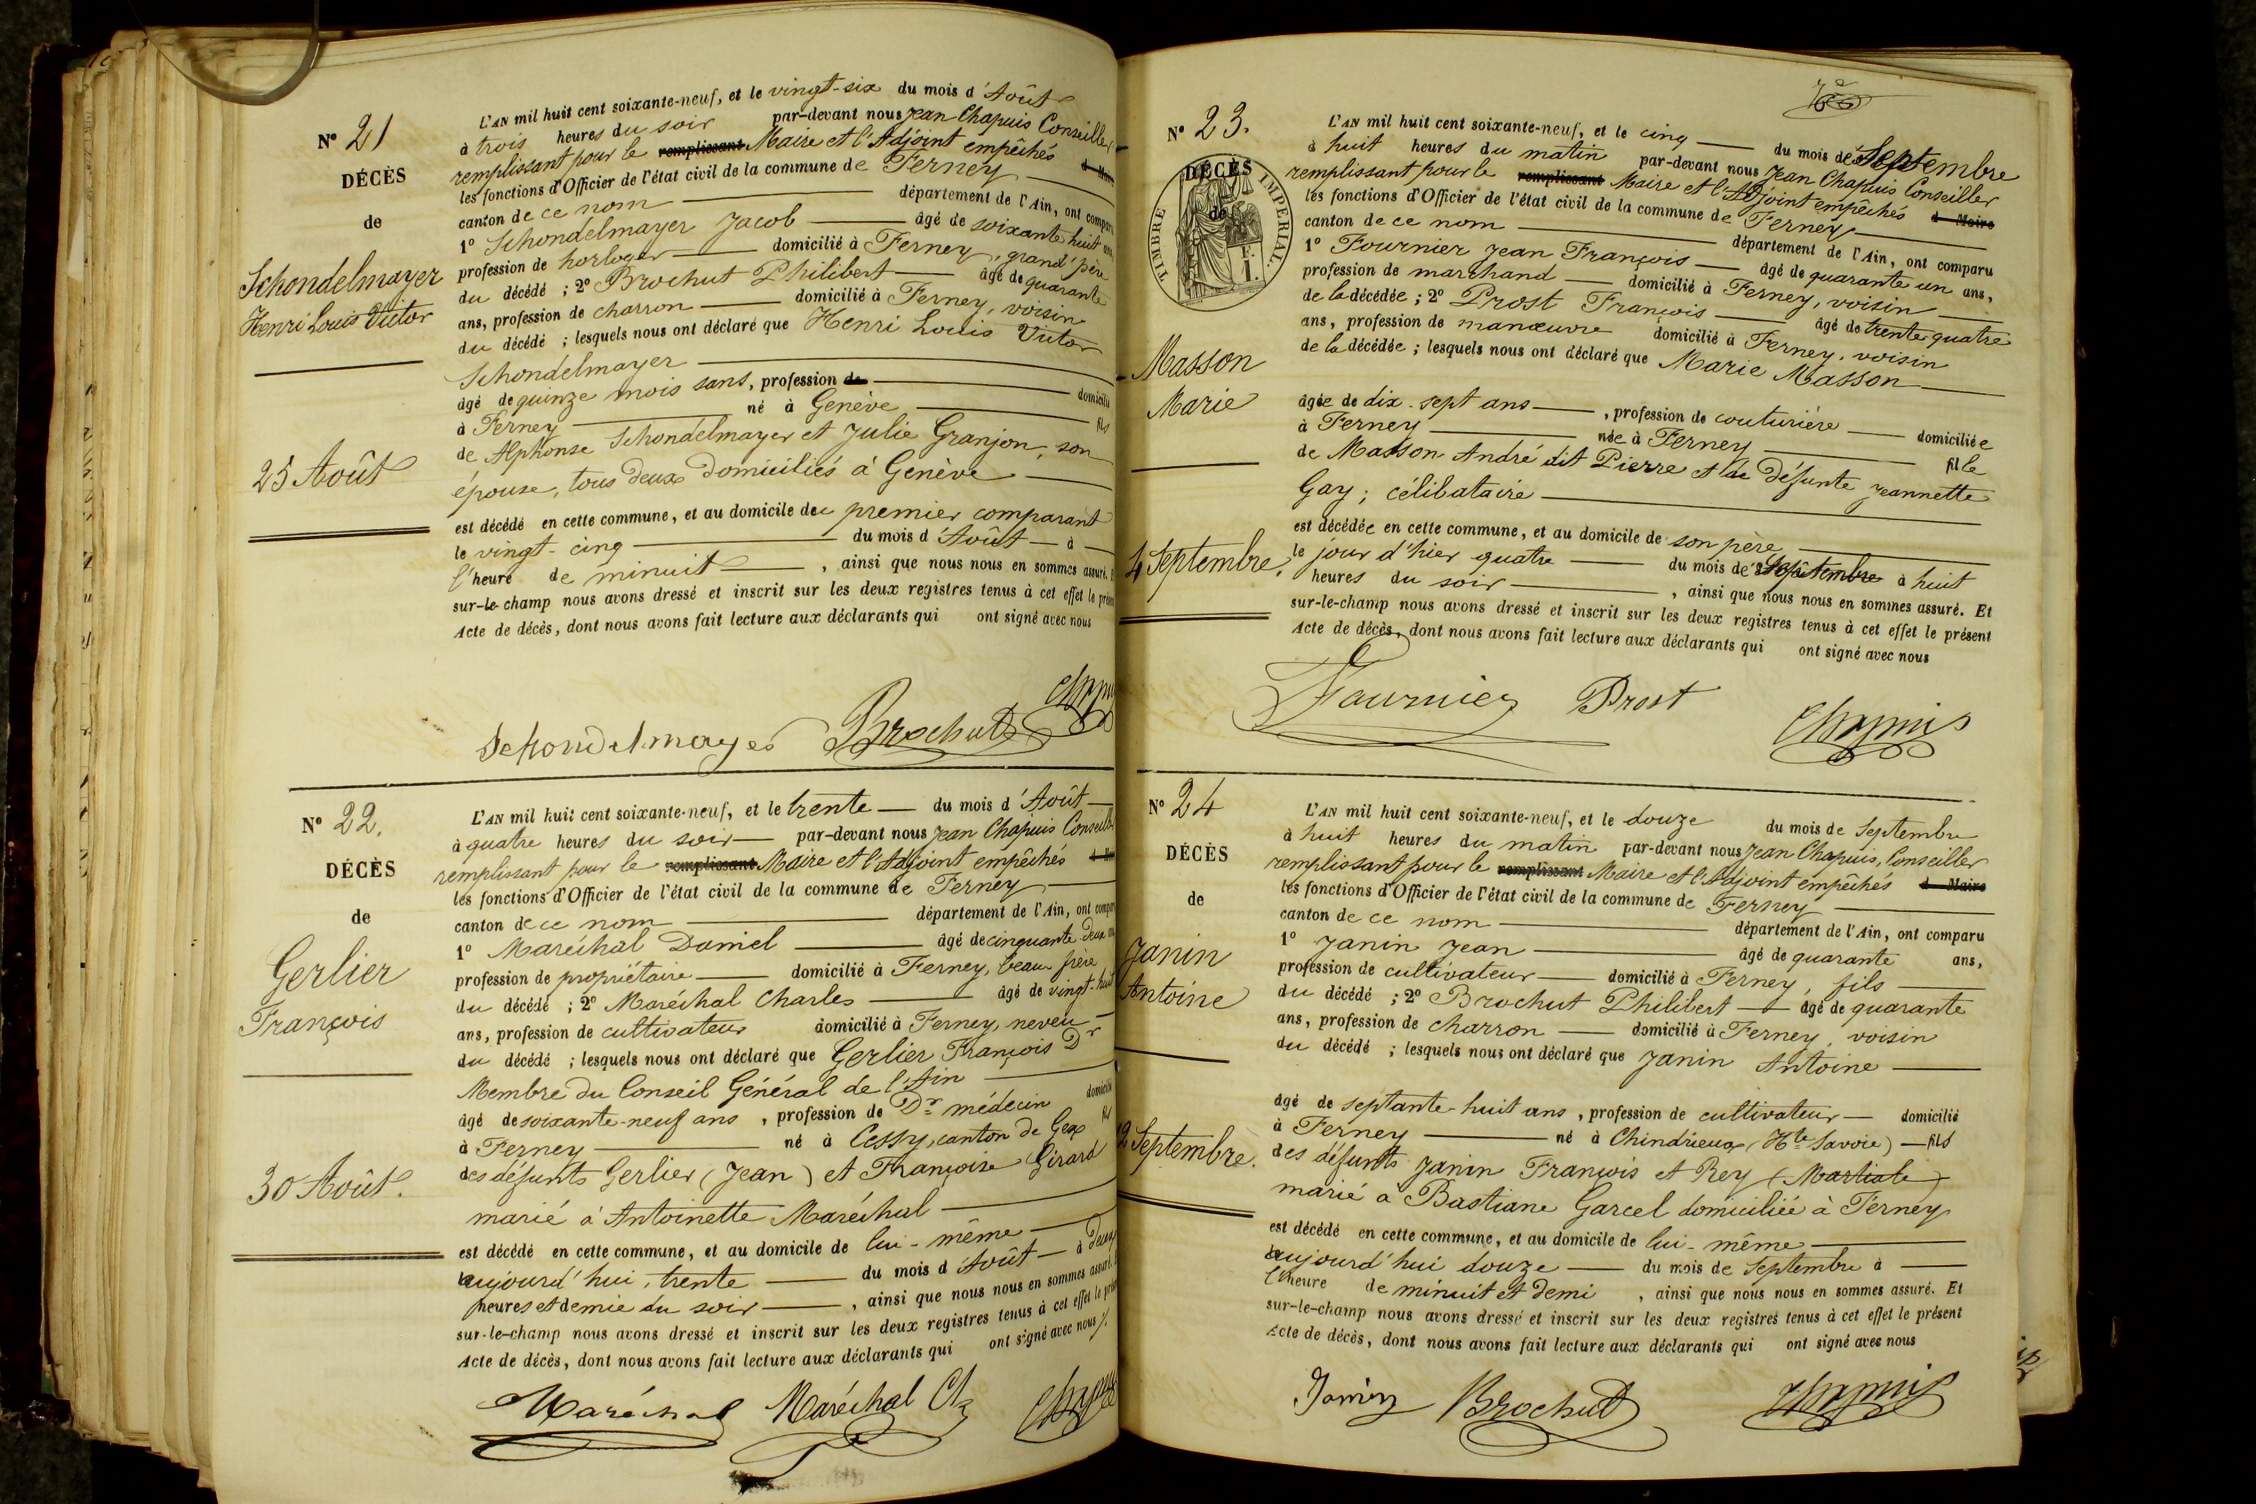 N° 21
DÉCÈS
de
Schondelmayer
Henri Louis Victor
25 Août
L'AN mil huit cent soixante-neuf, et le vingt-six du mois d'Août
à trois heures du soir par-devant nous Jean Chapuis Conseiller
remplissant pour le remplissant Maire et l'Adjoint empêchés
les fonctions d'Officier de l'état civil de la commune de Ferney
canton de ce nom département de l'Ain, ont comparu
1° Schondelmayer Jacob âgé de soixante huit ans,
profession de horloger domicilié à Ferney, grand'père
du décédé ; 2° Brochut Philibert âgé de quarante
ans, profession de charron domicilié à Ferney, voisin
du décédé ; lesquels nous ont déclaré que Henri Louis Victor
Schondelmayer
âgé de quinze mois sans, profession de domicilié
à Ferney né à Genève fils
de Alphonse Schondelmayer et Julie Granjon, son
épouse, tous deux domiciliés à Genève
est décédé en cette commune, et au domicile du premier comparant
le vingt-cinq du mois d'Août à
l'heure de minuit, ainsi que nous nous en sommes assuré. Et
sur-le-champ nous avons dressé et inscrit sur les deux registres tenus à cet effet le présent
Acte de décès, dont nous avons fait lecture aux déclarants qui ont signé avec nous
Schondelmayer Brochut Chapuis
N° 22.
DÉCÈS
de
Gerlier
François
30 Août.
L'AN mil huit cent soixante-neuf, et le trente du mois d'Août
à quatre heures du soir par-devant nous Jean Chapuis Conseiller
remplissant pour le remplissant Maire et l'Adjoint empêchés
les fonctions d'Officier de l'état civil de la commune de Ferney
canton de ce nom département de l'Ain, ont comparu
1° Maréchal Daniel âgé de cinquante deux ans
profession de propriétaire domicilié à Ferney, beau frère
du décédé ; 2° Maréchal Charles âgé de vingt-huit
ans, profession de cultivateur domicilié à Ferney, neveu
du décédé ; lesquels nous ont déclaré que Gerlier François Dr
Membre du Conseil Général de l'Ain
âgé de soixante-neuf ans, profession de Dr médecin domicilié
à Ferney né à Cessy, canton de Gex fils
des défunts Gerlier (Jean) et Françoise Girard
marié à Antoinette Maréchal
est décédé en cette commune, et au domicile de lui-même
aujourd'hui, trente du mois d'Août à deux
heures et demie du soir, ainsi que nous nous en sommes assuré.
sur-le-champ nous avons dressé et inscrit sur les deux registres tenus à cet effet le présent
Acte de décès, dont nous avons fait lecture aux déclarants qui ont signé avec nous
Maréchal Maréchal Ch Chapuis
N° 23.
DÉCÈS
de
TIMBRE IMPÉRIAL.
Masson
Marie
4 Septembre.
L'AN mil huit cent soixante-neuf, et le cinq du mois de Septembre
à huit heures du matin par-devant nous Jean Chapuis Conseiller
remplissant pour le remplissant Maire et l'Adjoint empêchés d Maire
les fonctions d'Officier de l'état civil de la commune de Ferney
canton de ce nom département de l'Ain, ont comparu
1° Fournier Jean François âgé de quarante un ans,
profession de marchand domicilié à Ferney, voisin
de la décédée ; 2° Prost François âgé de trente quatre
ans, profession de manœuvre domicilié à Ferney, voisin
de la décédée ; lesquels nous ont déclaré que Marie Masson
âgée de dix-sept ans, profession de couturière domiciliée
à Ferney née à Ferney fille
de Masson André dit Pierre et de défunte Jeannette
Gay ; célibataire
est décédée en cette commune, et au domicile de son père
le jour d'hier quatre du mois de Septembre à huit
heures du soir, ainsi que nous nous en sommes assuré. Et
sur-le-champ nous avons dressé et inscrit sur les deux registres tenus à cet effet le présent
Acte de décès, dont nous avons fait lecture aux déclarants qui ont signé avec nous
Fournier Prost Chapuis
N° 24
DÉCÈS
de
Janin
Antoine
12 Septembre.
L'AN mil huit cent soixante-neuf, et le douze du mois de Septembre
à huit heures du matin par-devant nous Jean Chapuis, Conseiller
remplissant pour le remplissant Maire et l'Adjoint empêchés d Maire
les fonctions d'Officier de l'état civil de la commune de Ferney
canton de ce nom département de l'Ain, ont comparu
1° Janin Jean âgé de quarante ans,
profession de cultivateur domicilié à Ferney, fils
du décédé ; 2° Brochut Philibert âgé de quarante
ans, profession de charron domicilié à Ferney, voisin
du décédé ; lesquels nous ont déclaré que Janin Antoine
âgé de septante-huit ans, profession de cultivateur domicilié
à Ferney né à Chindrieux (Hte Savoie) fils
des défunts Janin François et Rey (Martiale)
marié à Bastiane Garcel domiciliée à Ferney
est décédé en cette commune, et au domicile de lui-même
aujourd'hui douze du mois de Septembre à
l'heure de minuit et demi, ainsi que nous nous en sommes assuré. Et
sur-le-champ nous avons dressé et inscrit sur les deux registres tenus à cet effet le présent
Acte de décès, dont nous avons fait lecture aux déclarants qui ont signé avec nous
Janin Brochut Chapuis